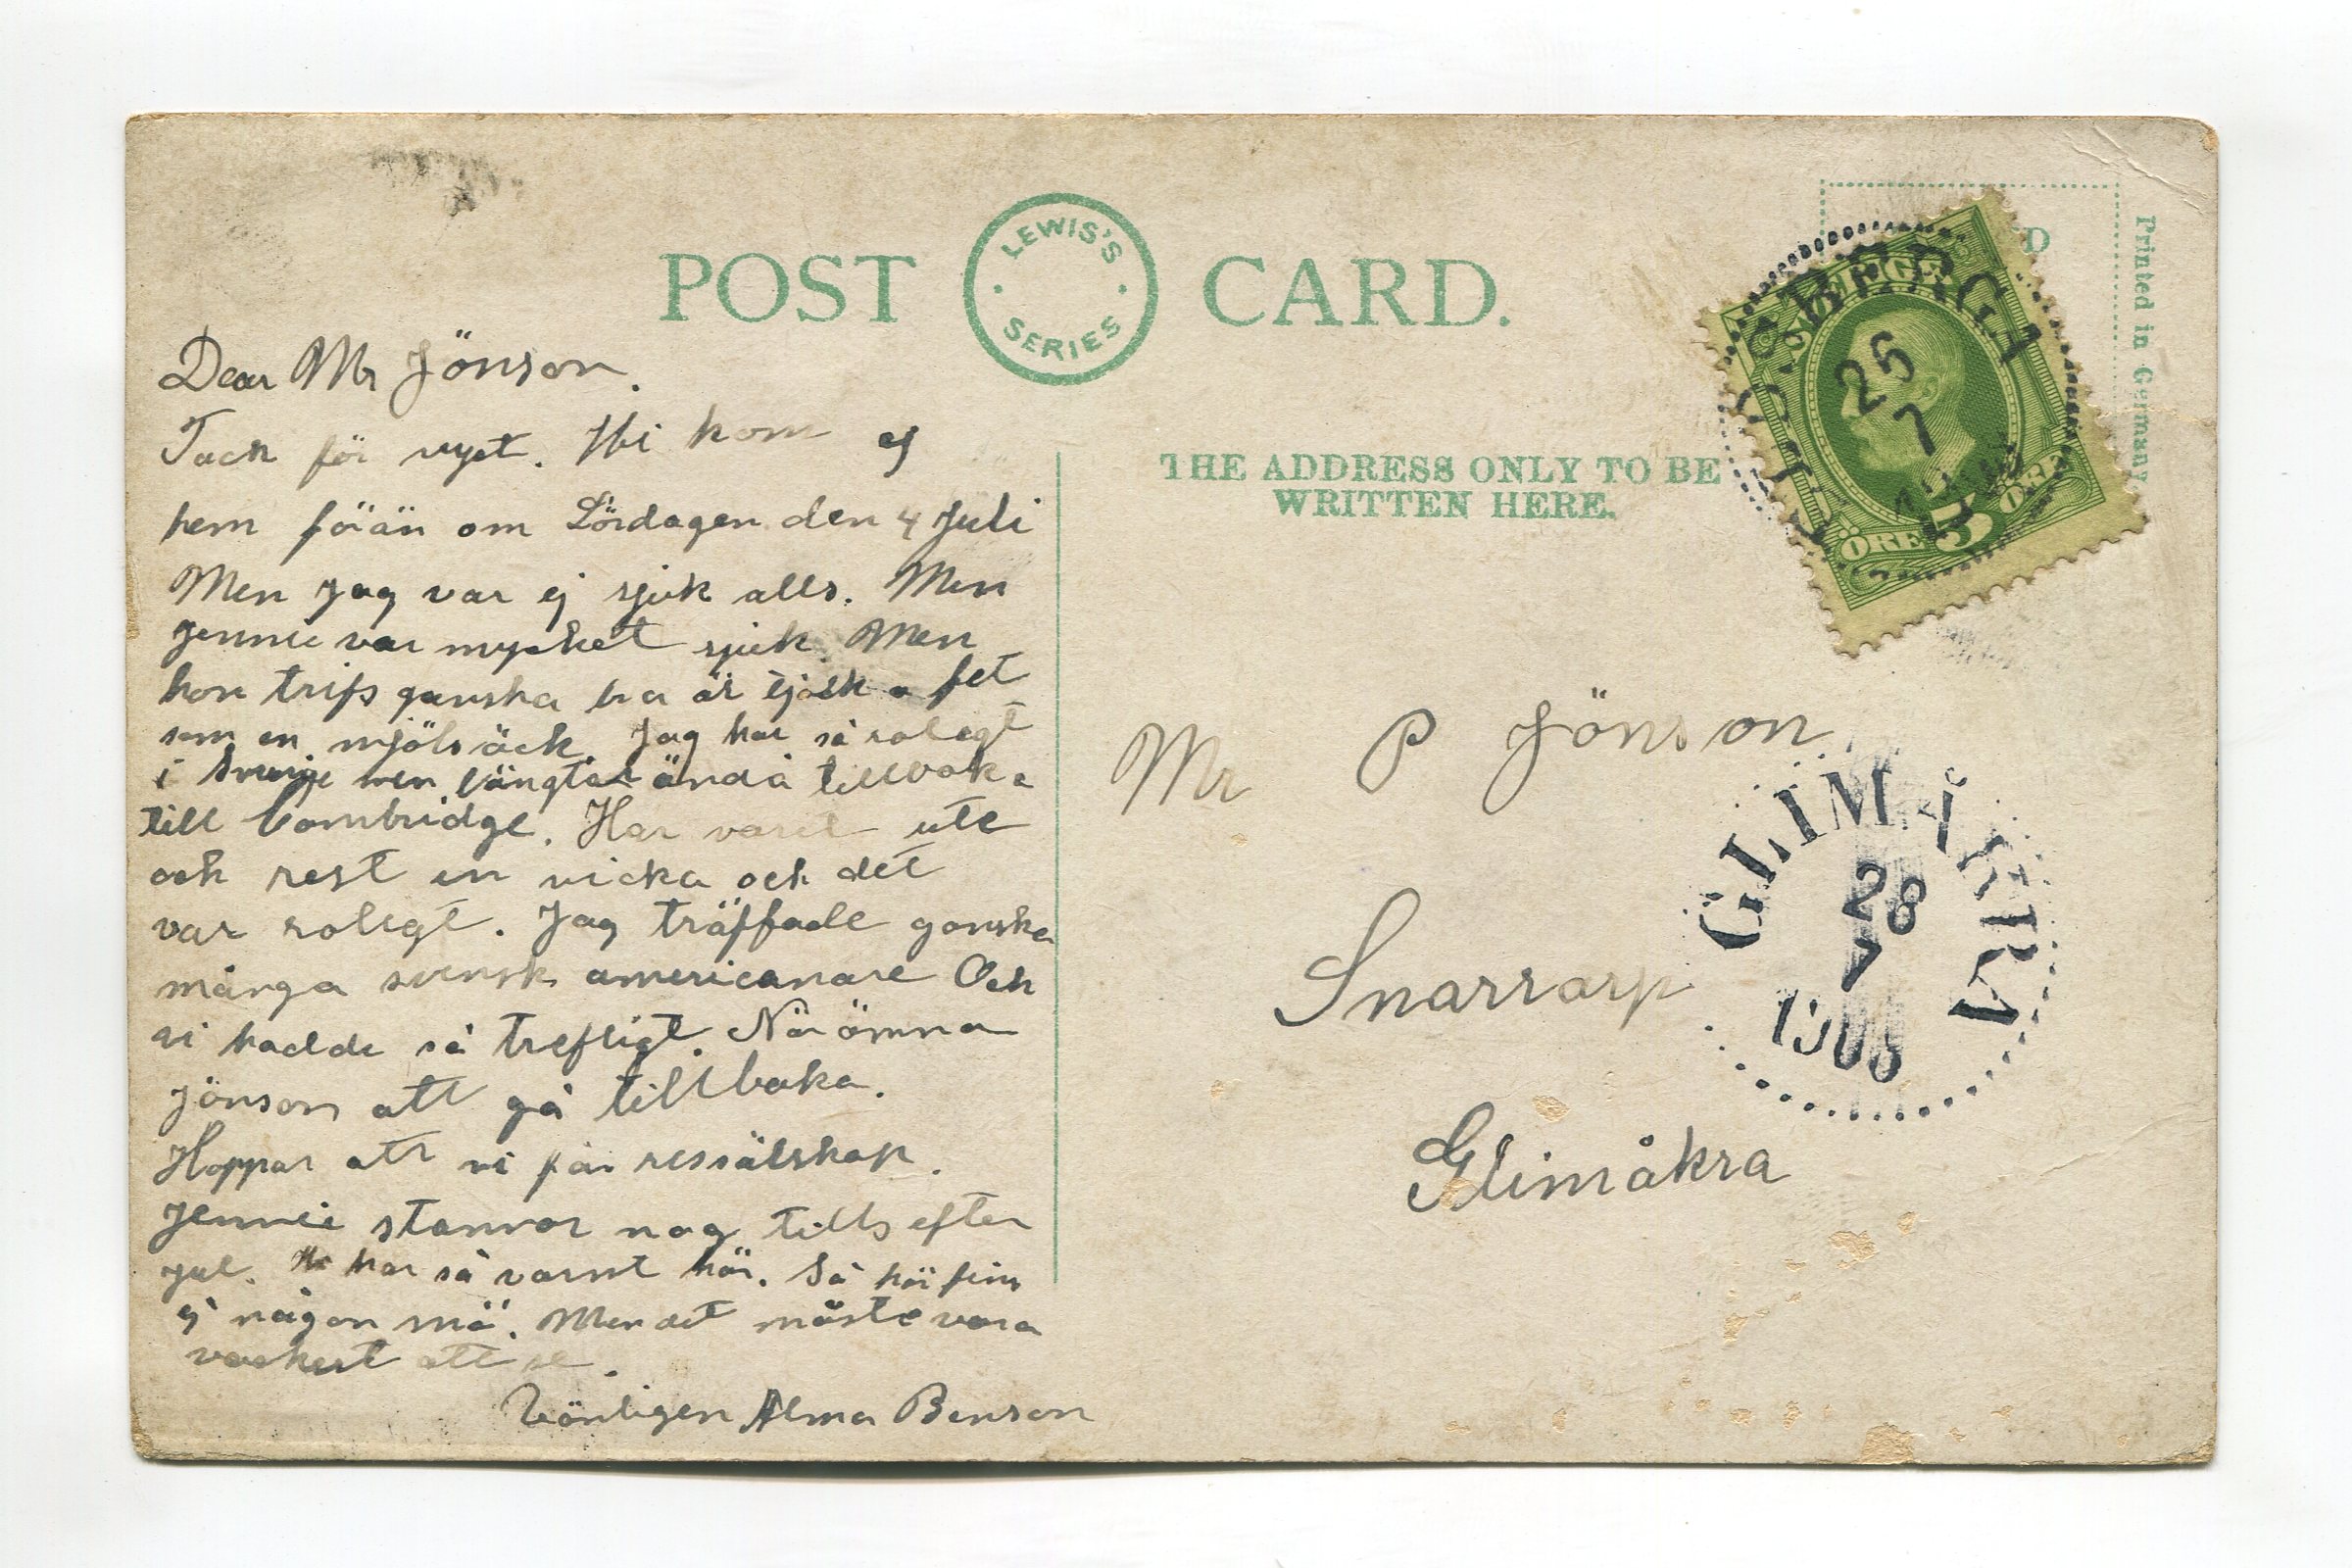 POST CARD.
LEWIS'S
SERIES
Printed in Germany.
THE ADDRESS ONLY TO BE
WRITTEN HERE.
SVERIGE
25
7
ÖRE 5 ÖRE
Dear Mr Jönson.
Tack för vyet. Vi kom ej
hem förän om Lördagen den 4 Juli
Men Jag var ej sjuk alls. Men
Jennie var mycket sjuk. Men
hon trifs ganska bra är tjock o fet
som en mjölsäck. Jag har så rolegt
i Sverige men längtar ändå tillbaka
till Cambridge. Har varit ute
och rest en vicka och det
var rolegt. Jag träffade ganska
många svensk americanare Och
vi hadde så trefligt. När ämna
Jönson att gå tillbaka.
Hoppas att vi får ressälskap.
Jennie stannar nog tills efter
jul. har så varmt här. Så här fins
ej någon snö. Men det måste vara
vackert att se.
Vänligen Alma Benson
Mr P Jönson
Snarrarp
Glimåkra
GLIMÅKRA
28
7
1908